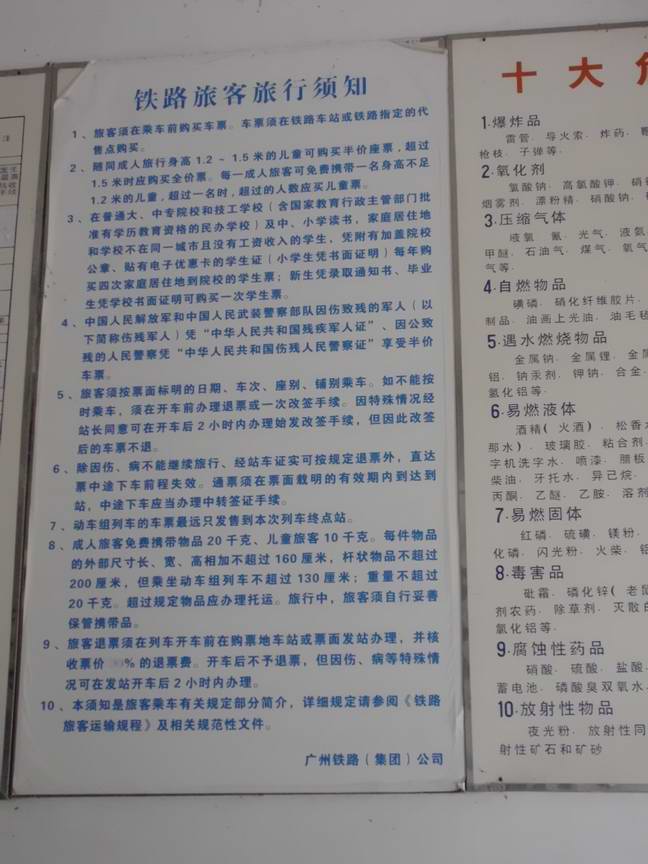 铁路旅客旅行须知
1、旅客须在乘车前购买车票。车票须在铁路车站或铁路指定的代
售点购买。
2、随同成人旅行身高1.2～1.5米的儿童可购买半价座票,超过
1.5米时应购买全价票。每一成人旅客可免费携带一名身高不足
1.2米的儿童,超过一名时,超过的人数应买儿童票。
3、在普通大、中专院校和技工学校(含国家教育行政主管部门批
准有学历教育资格的民办学校)及中、小学读书,家庭居住地
和学校不在同一城市且没有工资收入的学生,凭附有加盖院校
公章、贴有电子优惠卡的学生证(小学生凭书面证明)每年购
买四次家庭居住地到院校的学生票;新生凭录取通知书、毕业
生凭学校书面证明可购买一次学生票。
4、中国人民解放军和中国人民武装警察部队因伤致残的军人(以
下简称伤残军人)凭“中华人民共和国残疾军人证”、因公致
残的人民警察凭“中华人民共和国伤残人民警察证”享受半价
车票。
5、旅客须按票面标明的日期、车次、座别、铺别乘车。如不能按
时乘车,须在开车前办理退票或一次改签手续。因特殊情况经
站长同意可在开车后2小时内办理始发改签手续,但因此改签
后的车票不退。
6、除因伤、病不能继续旅行、经站车证实可按规定退票外,直达
票中途下车前程失效。通票须在票面载明的有效期内到达到
站,中途下车应当办理中转签证手续。
7、动车组列车的车票最远只发售到本次列车终点站。
8、成人旅客免费携带物品20千克、儿童旅客10千克。每件物品
的外部尺寸长、宽、高相加不超过160厘米,杆状物品不超过
200厘米,但乘坐动车组列车不超过130厘米;重量不超过
20千克。超过规定物品应办理托运。旅行中,旅客须自行妥善
保管携带品。
9、旅客退票须在列车开车前在购票地车站或票面发站办理,并核
收票价 %的退票费。开车后不予退票,但因伤、病等特殊情
况可在发站开车后2小时内办理。
10、本须知是旅客乘车有关规定部分简介,详细规定请参阅《铁路
旅客运输规程》及相关规范性文件。
广州铁路(集团)公司
十大
1·爆炸品
雷管. 导火索. 炸药.
枪枝. 子弹等.
2·氧化剂
氯酸钠. 高氯酸钾.
烟雾剂. 漂粉精. 硝酸钠.
3·压缩气体
液氯 氟. 光气.
甲醚. 石油气. 煤气. 氧气
气等.
4·自燃物品
磺磷. 硝化纤维胶片.
制品. 油画上光油.
5·遇水燃烧物品
金属钠. 金属锂. 金
铝. 钠汞剂. 钾钠. 合金.
氢化铝等.
6·易燃液体
酒精(火酒). 松香水
那水). 玻璃胶. 粘合剂.
字机洗字水. 喷漆.
柴油. 牙托水. 异己烷.
丙酮. 乙醚. 乙胺. 溶剂
7·易燃固体
红磷. 硫磺. 镁粉.
化磷. 闪光粉. 火柴. 铝
8·毒害品
砒霜. 磷化锌(老鼠
剂农药. 除草剂. 灭散
氧化铝等.
9·腐蚀性药品
硝酸. 硫酸. 盐酸
蓄电池. 磷酸臭双氧水.
10·放射性物品
夜光粉. 放射性同
射性矿石和矿砂